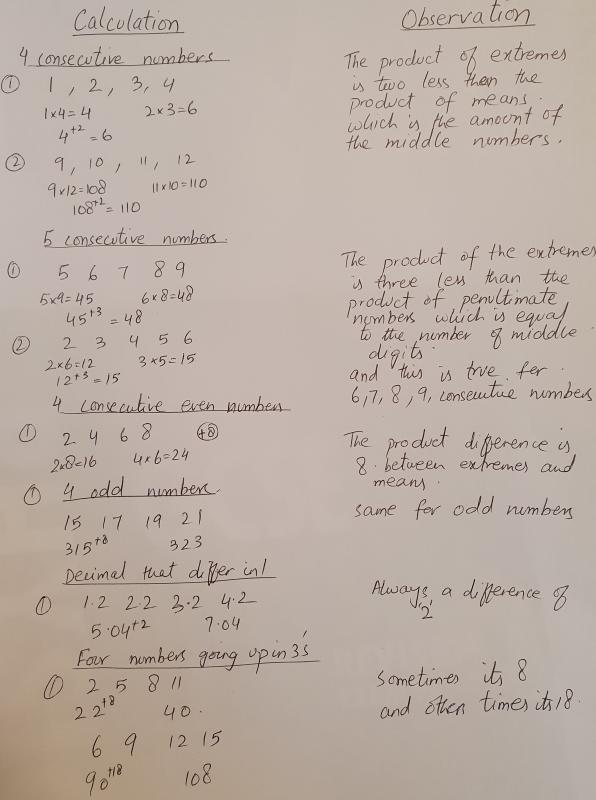 Calculation
Observation
4 consecutive numbers
① 1, 2, 3, 4
1x4=4 2x3=6
4+2=6
The product of extremes
is two less then the
product of means.
which is the amount of
the middle numbers.
② 9, 10, 11, 12
9x12=108 11x10=110
108+2=110
5 consecutive numbers.
① 5 6 7 8 9
5x9=45 6x8=48
45+3=48
② 2 3 4 5 6
2x6=12 3x5=15
12+3=15
The product of the extremes
is three less than the
product of penultimate
numbers which is equal
to the number of middle
digits.
and this is true for
6,7,8,9, consecutive numbers
4 consecutive even numbers
① 2 4 6 8 +8
2x8=16 4x6=24
The product difference is
8 between extremes and
means.
① 4 odd numbers.
15 17 19 21
315+8 323
same for odd numbers
Decimal that differ in 1
① 1.2 2.2 3.2 4.2
5.04+2 7.04
Always a difference of
'2'
Four numbers going up in 3's
① 2 5 8 11
22+8 40.
6 9 12 15
90+18 108
Sometimes its 8
and other times its 18.